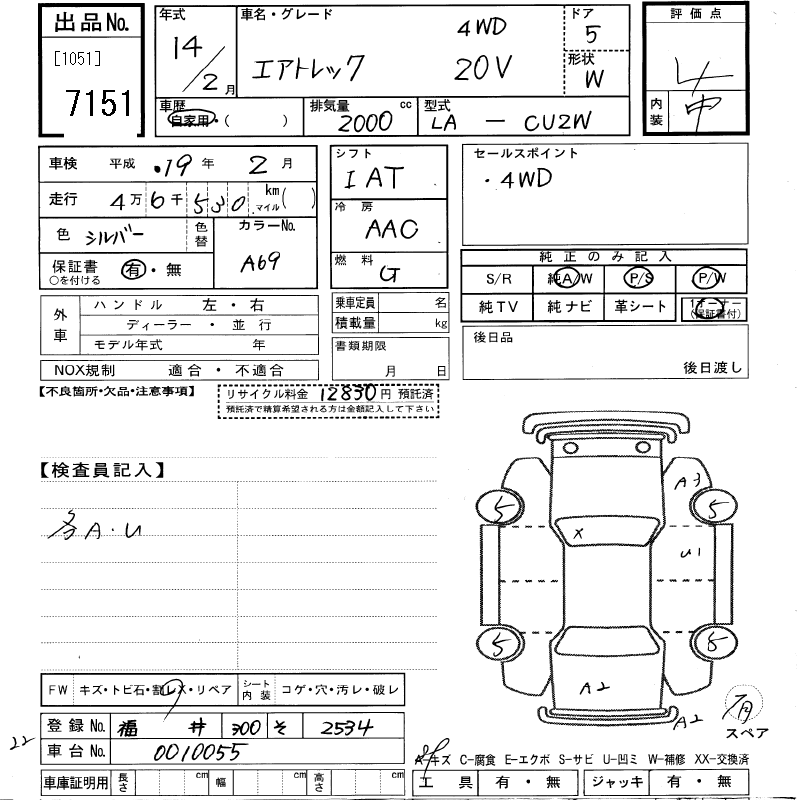 出品No.
[1051]
7151
年式
14/2月
車名・グレード
エアトレック
4WD
20V
ドア
5
形状
W
評価点
4
内装
中
車歴
自家用・( )
排気量 2000 cc
型式 LA - CU2W
車検 平成 19年 2月
走行 4万6千530 km マイル( )
色 シルバー
色替
カラーNo.
A69
保証書 有・無
○を付ける
シフト
I AT
冷房
AAC
燃料
G
セールスポイント
・4WD
純正のみ記入
S/R 純A/W P/S P/W
純TV 純ナビ 革シート 1オーナー
(保証書付)
外車
ハンドル 左・右
ディーラー・並行
モデル年式 年
NOX規制 適合・不適合
乗車定員 名
積載量 kg
書類期限
月 日
後日品
後日渡し
【不良箇所・欠品・注意事項】
リサイクル料金 12830円預託済
預託済で精算希望される方は金額記入して下さい
【検査員記入】
各A・U
A3
5 5
X
U1
5 5
A2
A2
有
スペア
FW キズ・トビ石・割レ・リペア
シート内装 コゲ・穴・汚レ・破レ
登録No. 福井 300 そ 2534
22
車台No. 0010055
A-キズ C-腐食 E-エクボ S-サビ U-凹ミ W-補修 XX-交換済
車庫証明用 長さ cm 幅 cm 高さ cm
工具 有・無 ジャッキ 有・無